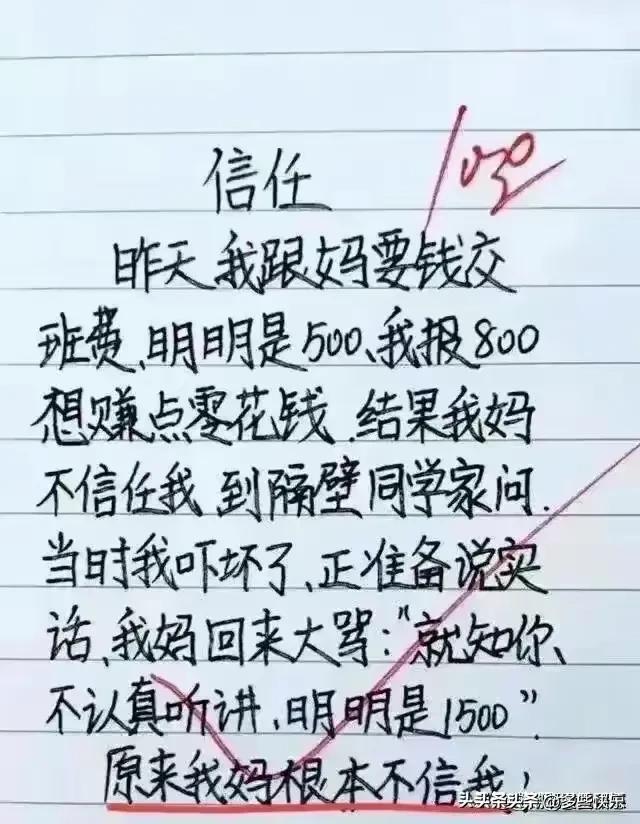 信任
昨天我跟妈要钱交
班费、明明是500、我报800
想赚点零花钱.结果我妈
不信任我 到隔壁同学家问.
当时我吓坏了、正准备说实
话、我妈回来大骂:“就知你、
不认真听讲,明明是1500”
原来我妈根本不信我!